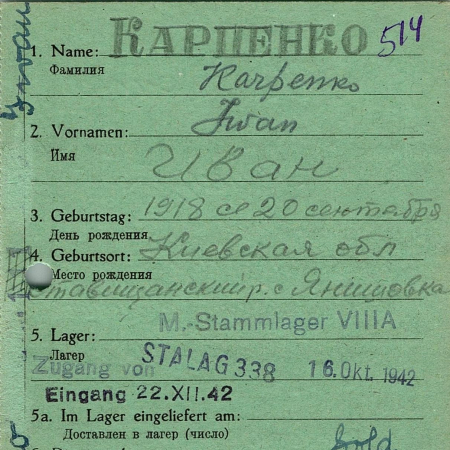 1. Name: КАРПЕНКО 514
Фамилия
Karpenko
2. Vornamen: Iwan
Имя
Иван
3. Geburtstag: 1918 20 сентября
День рождения
4. Geburtsort: Киевская обл
Место рождения
Ставищанский р. с
5. Lager: M.-Stammlager VIIIA
Лагер
Zugang von STALAG 338 16. Okt. 1942
Eingang 22.XII.42
5a. Im Lager eingeliefert am:
Доставлен в лагер (число)
Sold